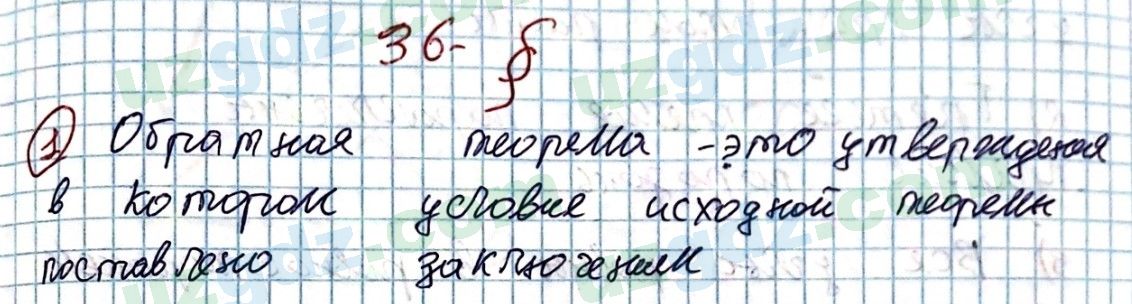 36-§
1 Обратная теорема - это утверждения
в котором условие исходной теоремы
поставлено заключением